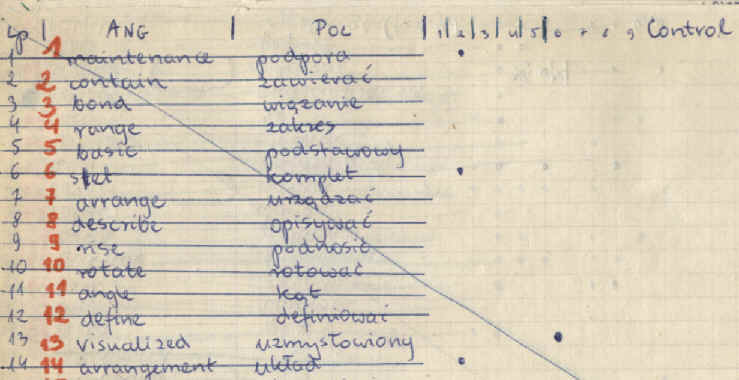 Lp | ANG | POL | 1 | 2 | 3 | 4 | 5 | 6 7 8 9 Control
1 1 maintenance podpora
2 2 contain zawierać
3 3 bond wiązanie
4 4 range zakres
5 5 basic podstawowy
6 6 set komplet
7 7 arrange urządzać
8 8 describe opisywać
9 9 rise podnosić
10 10 rotate rotować
11 11 angle kąt
12 12 define definiować
13 13 visualized uzmysłowiony
14 14 arrangement układ